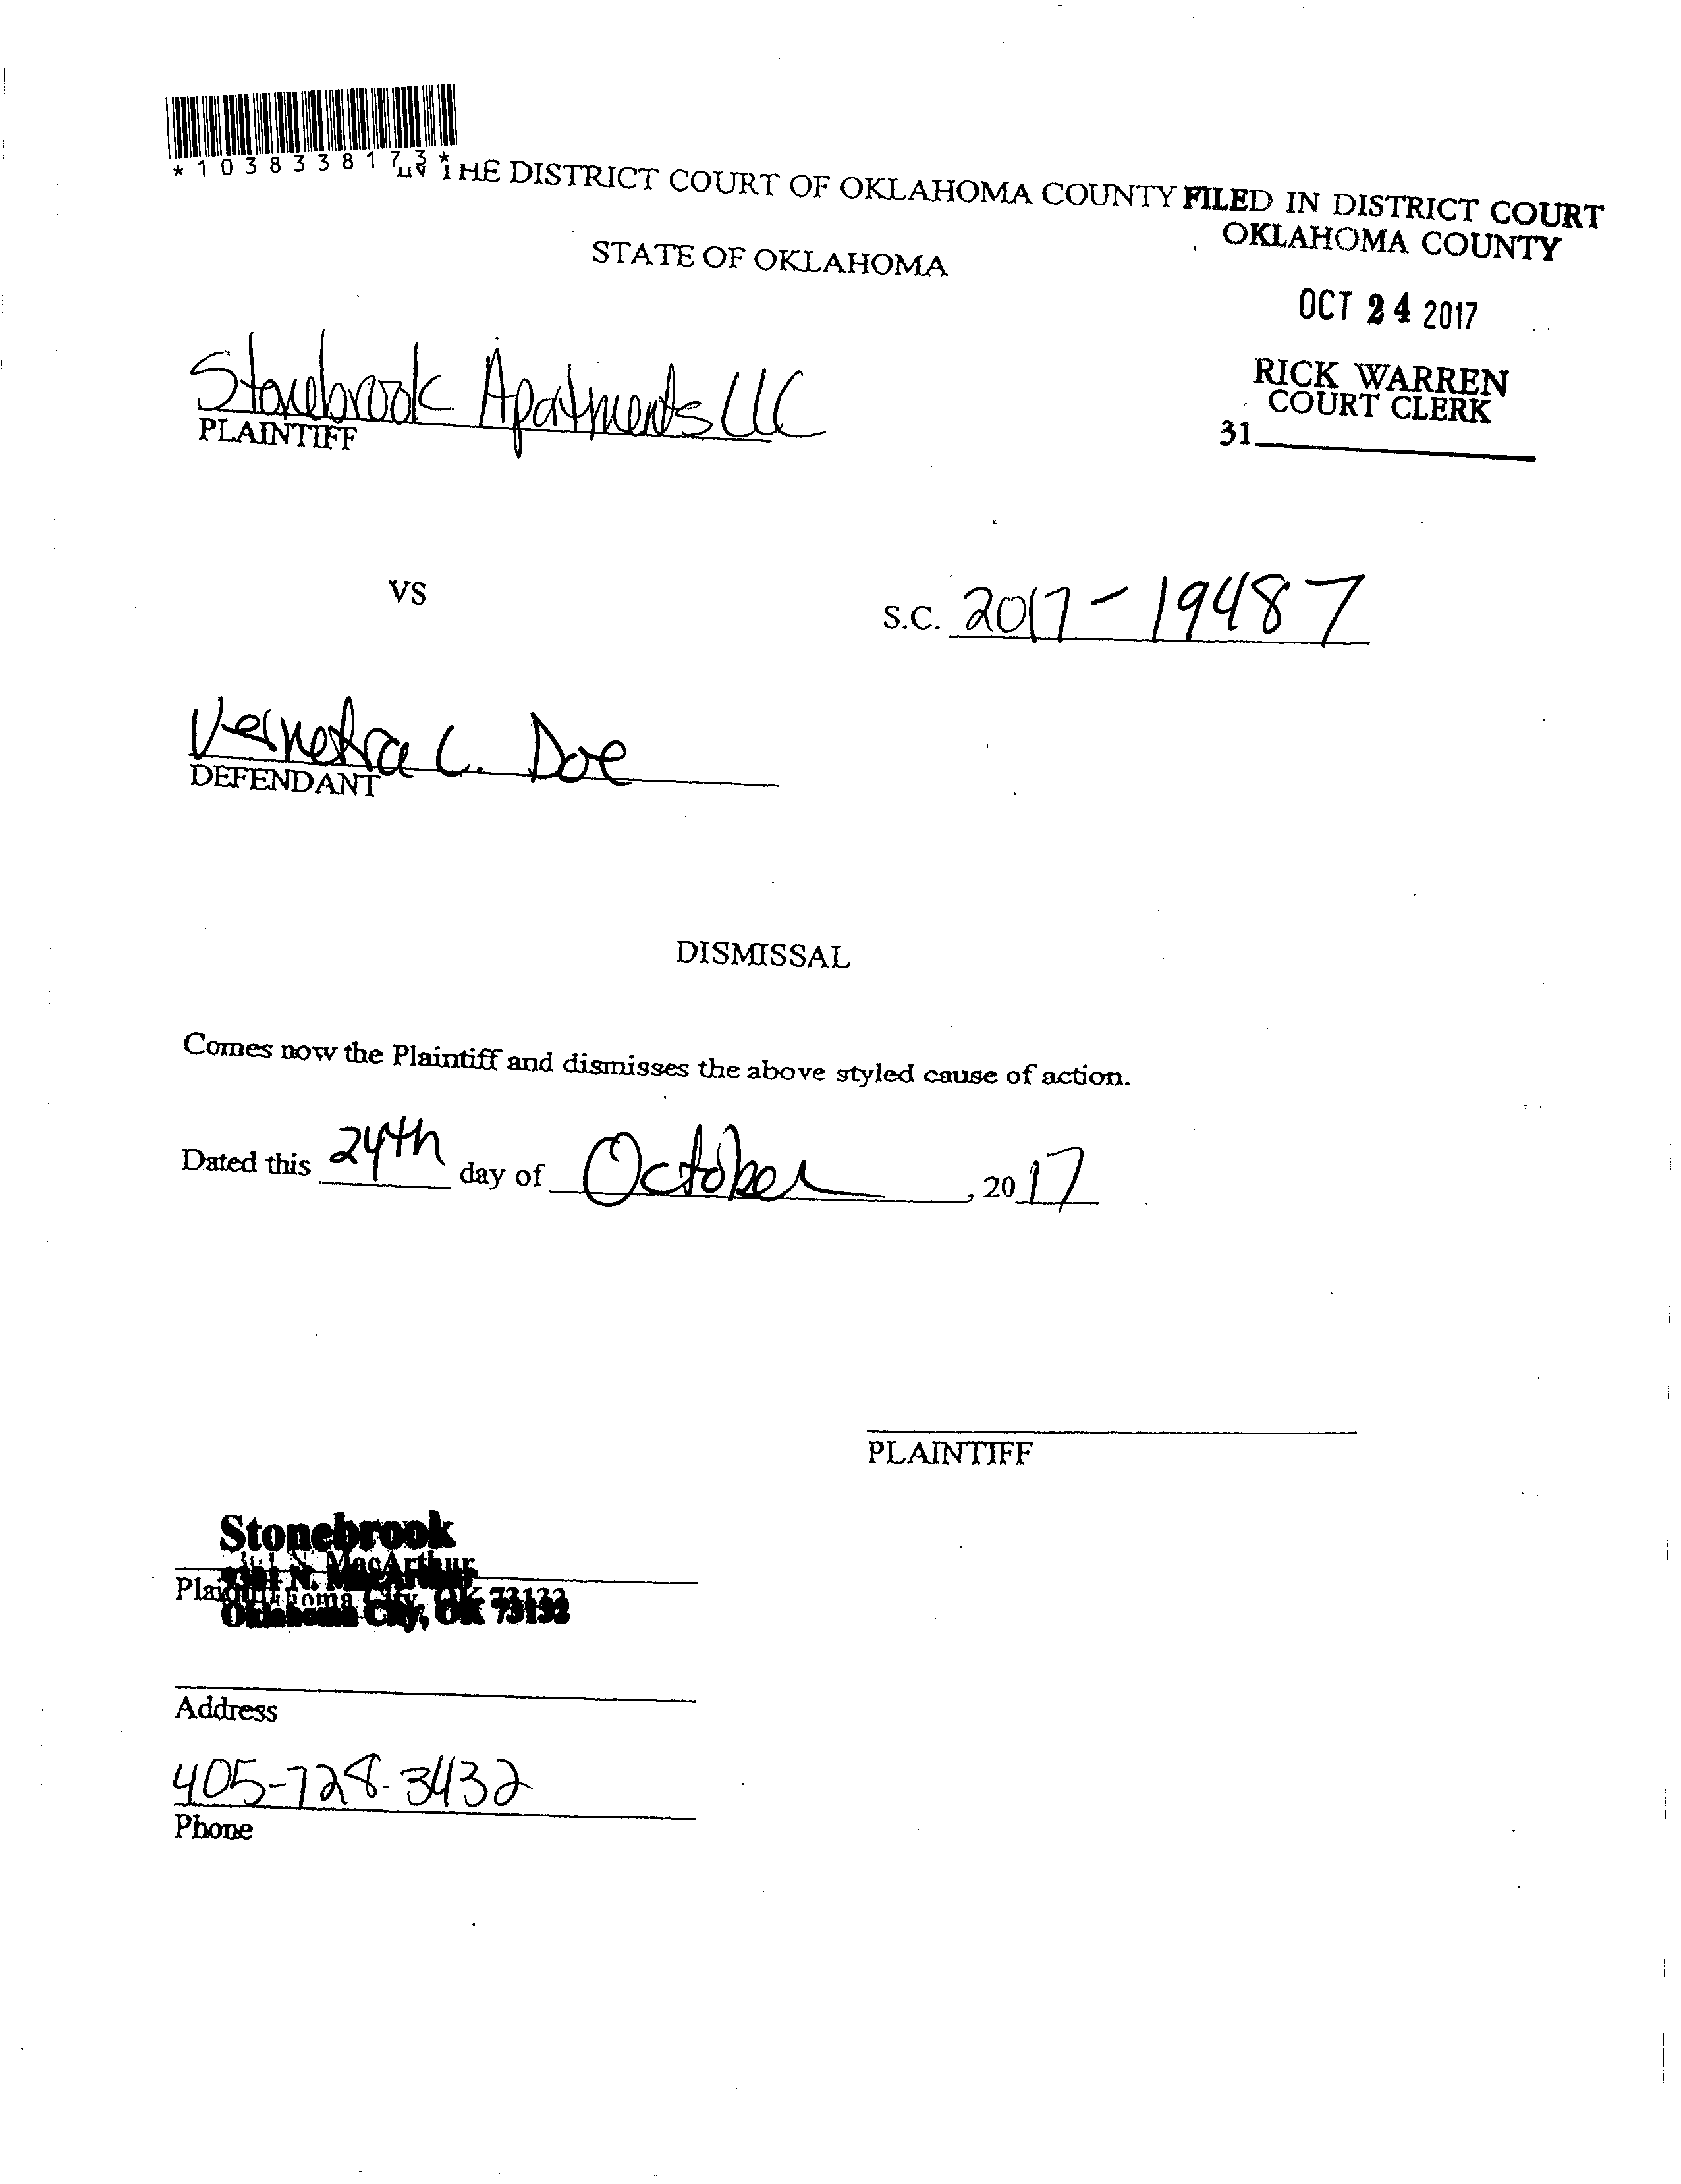 *1038338173*
IN THE DISTRICT COURT OF OKLAHOMA COUNTY
FILED IN DISTRICT COURT
OKLAHOMA COUNTY
STATE OF OKLAHOMA
OCT 24 2017
RICK WARREN
COURT CLERK
31
Stonebrook Apartments LLC
PLAINTIFF
VS
S.C. 2017-19487
Vernetra C. Doe
DEFENDANT
DISMISSAL
Comes now the Plaintiff and dismisses the above styled cause of action.
Dated this 24th day of October, 2017
PLAINTIFF
Stonebrook
N. MacArthur
Oklahoma City, OK 73132
Address
405-728-3432
Phone